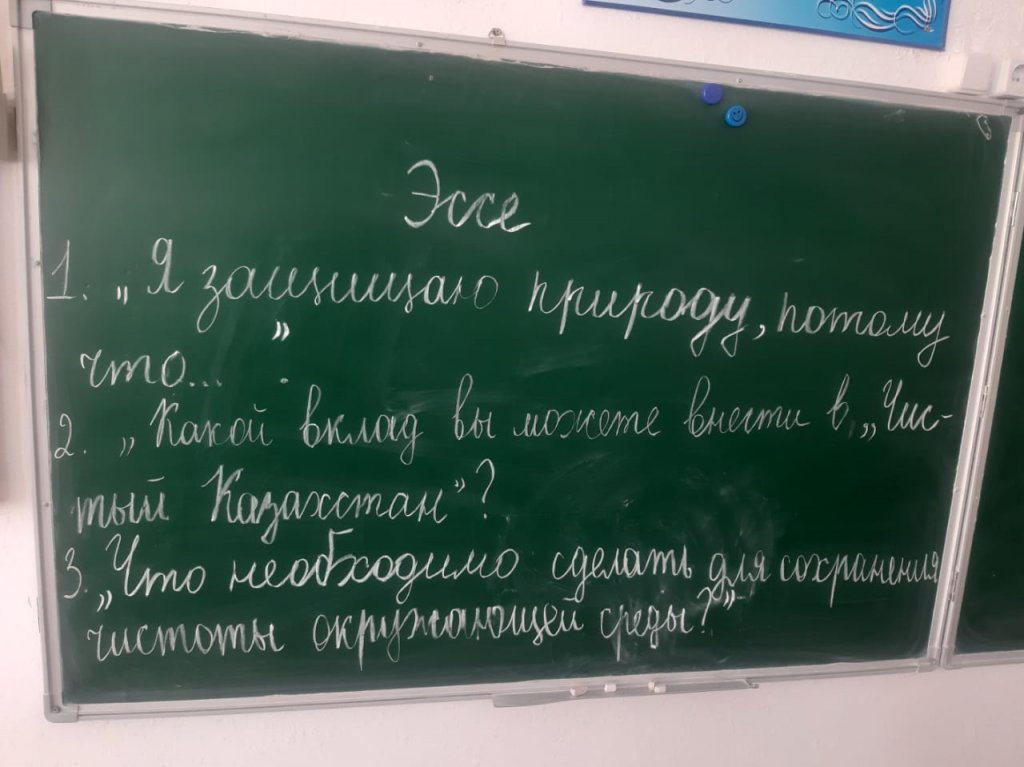 Эссе
1. „Я защищаю природу, потому
что... ”.
2. „Какой вклад вы можете внести в „Чис-
тый Казахстан”?
3. „Что необходимо сделать для сохранения
чистоты окружающей среды?”